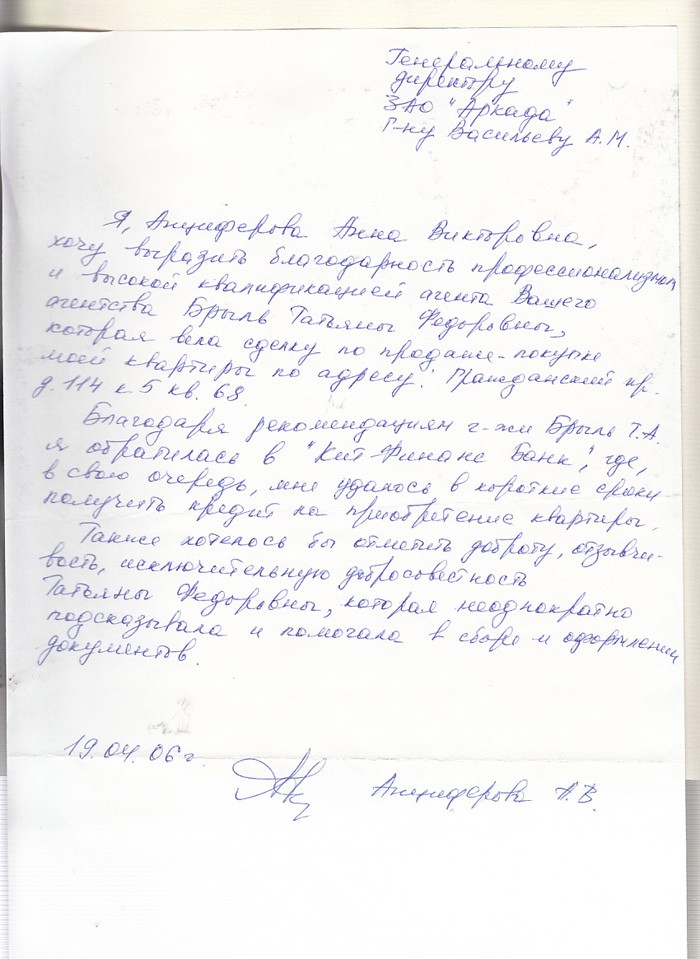 Генеральному
директору
ЗАО "Аркада"
Г-ну Васильеву А.М.
Я, Анциферова Анна Викторовна,
хочу выразить благодарность профессионализмом
и высокой квалификацией агента Вашего
агентства Брыль Татьяны Федоровны,
которая вела сделку по продаже-покупке
моей квартиры по адресу: Гражданский пр.
д. 114 к 5 кв. 68.
Благодаря рекомендациям г-жи Брыль Т.А.
я обратилась в "Кит-Финанс Банк", где,
в свою очередь, мне удалось в короткие сроки
получить кредит на приобретение квартиры.
Также хотелось бы отметить доброту, отзывчи-
вость, исключительную добросовестность
Татьяны Федоровны, которая неоднократно
подсказывала и помогала в сборе и оформлении
документов.
19.04.06 г.
Анциферова А.В.